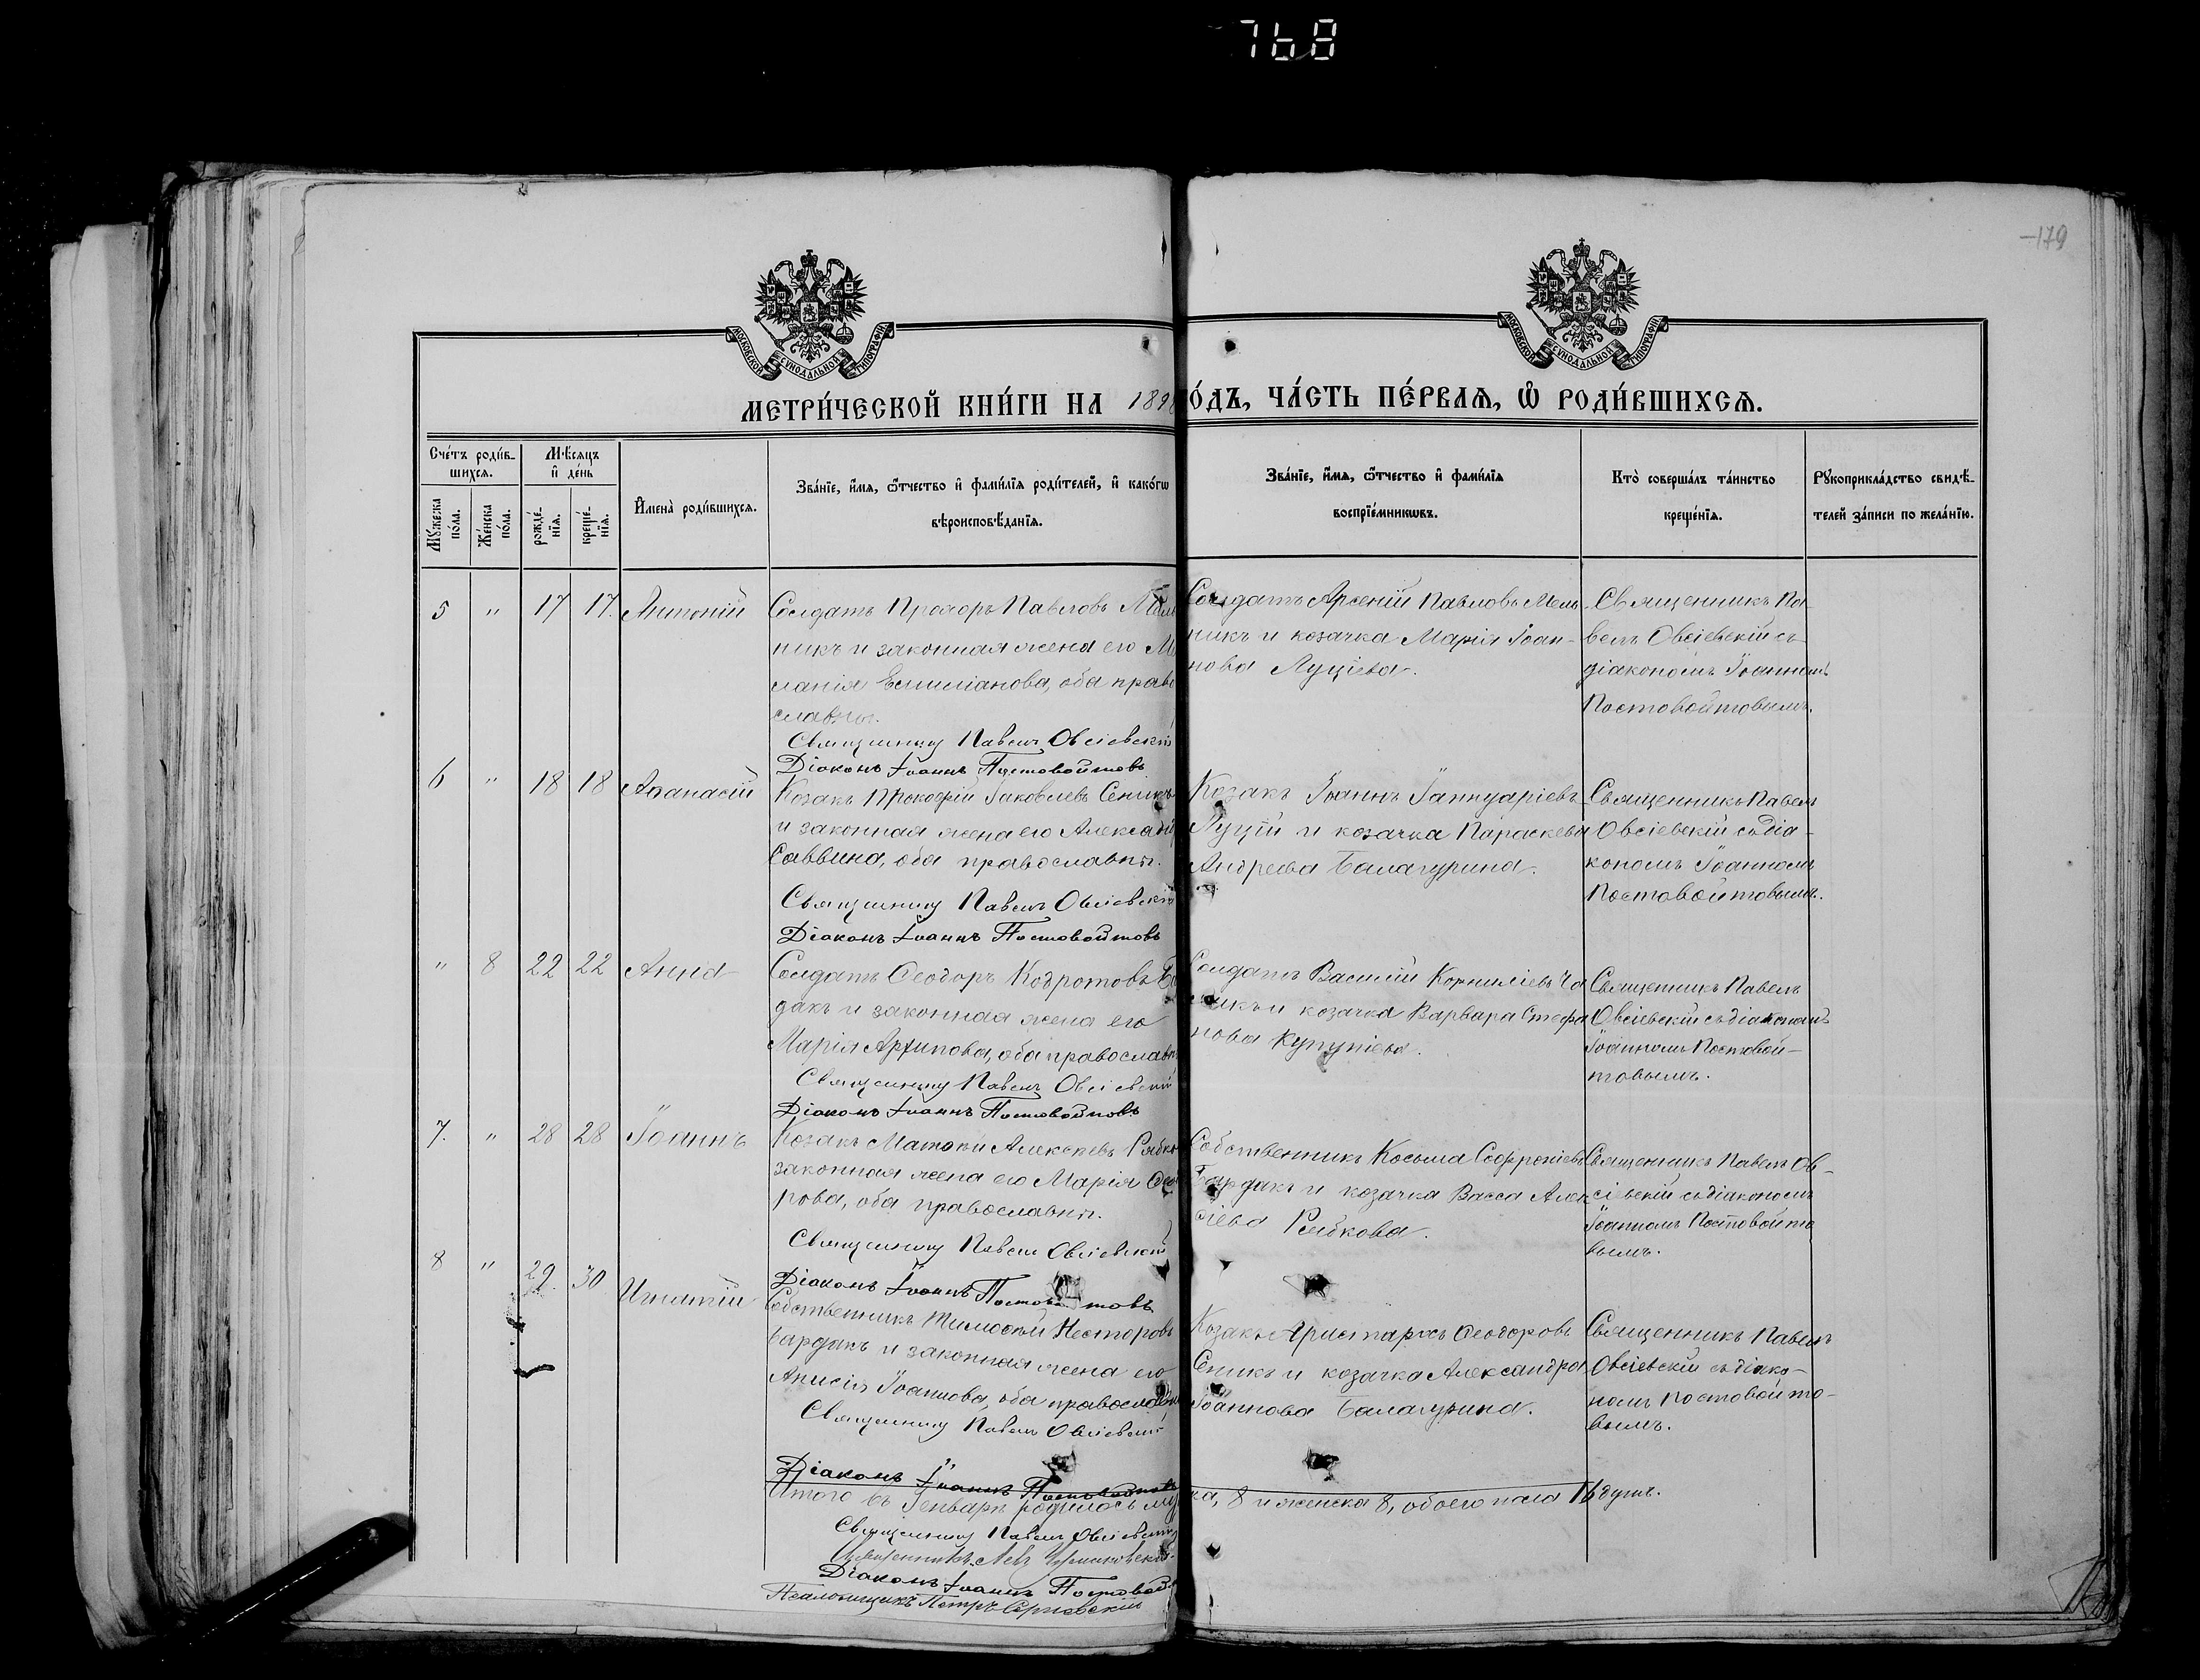 768
-179
МОСКОВСКОЙ СѴНОДАЛЬНОЙ ТИПОГРАФІИ
МОСКОВСКОЙ СѴНОДАЛЬНОЙ ТИПОГРАФІИ
МЕТРИ́ЧЕСКОЙ КНИ́ГИ НА 1898
О́ДЪ, ЧА́СТЬ ПЕ́РВАЯ, Ѡ РОДИ́ВШИХСЯ.
Сче́тъ роди́в-
шихся.
Мѣ́сяцъ
и҆ де́нь
Мꙋ́жеска по́ла.
Же́нска по́ла.
рожде́-
нїя.
креще́-
нїя.
И҆мена̀ роди́вшихся.
Зва́нїе, и҆́мя, ѻ҆́тчество и҆ фамѝлїя роди́телей, и҆ како́гѡ
вѣроисповѣ́данїя.
Зва́нїе, и҆́мя, ѻ҆́тчество и҆ фамѝлїя
воспрїе́мникѡвъ.
Кто̀ соверша́лъ та́инство
креще́нїя.
Рꙋкоприкла́дство свидѣ́-
телей за́писи по жела́нїю.
5 " 17 17. Антоній
Солдатъ Прохоръ Павловъ Мель
никъ и законная жена его Ме
ланія Емиліанова, оба право
славны.
Священникъ Павелъ Овсіевскій
Діаконъ Іоаннъ Постовойтовъ
Солдатъ Арсеній Павловъ Мель-
никъ и козачка Марія Іоан-
нова Луціева.
Священникъ Па-
велъ Овсіевскій съ
діакономъ Іоанномъ
Постовойтовымъ.
6 " 18 18 Аѳанасій
Козакъ Прокофій Іаковлевъ Сеникъ
и законная жена его Александ
Саввина, оба православны.
Священникъ Павелъ Овсіевскій
Діаконъ Іоаннъ Постовойтовъ
Козакъ Іоаннъ Іаннуаріевъ
Луцій и козачка Параскева
Андреева Балагурина.
Священникъ Павелъ
Овсіевскій съ діа-
кономъ Іоанномъ
Постовойтовымъ.
" 8 22 22 Анна
Солдатъ Ѳеодоръ Кодротовъ
дакъ и законная жена его
Марія Архипова, оба православн
Священникъ Павелъ Овсіевскій
Діаконъ Іоаннъ Постовойтовъ
Солдатъ Василій Корниліевъ
и козачка Варвара Стефа
нова
Священникъ Павелъ
Овсіевскій съ діакономъ
Іоанномъ Постовой-
товымъ.
7. " 28 28 Іоаннъ
Козакъ Матѳій Алексѣевъ Рябко
законная жена его Марія Ѳеод
рова, оба православны.
Священникъ Павелъ Овсіевскій
Діаконъ Іоаннъ Постовойтовъ
Собственникъ Косьма Софроніевъ
Бардакъ и козачка Васса Алек
сіева Рябкова.
Священникъ Павелъ Ов-
сіевскій съ діакономъ
Іоанномъ Постовойто
вымъ.
8 " 29. 30 Игнатій
Собственникъ Тимоѳей Несторовъ
Бардакъ и законная жена его
Анисія Іоаннова, оба православны
Священникъ Павелъ Овсіевскій
Діаконъ Іоаннъ Постовойтовъ
Козакъ Аристархъ Ѳеодоровъ
Сеникъ и козачка Александра
Іоаннова Балагурина.
Священникъ Павелъ
Овсіевскій съ діако-
номъ Постовойто-
вымъ.
Итого въ Генварѣ родилось му
ка, 8 и женска 8, обоего пола 16 душъ.
Священникъ Павелъ Овсіевскій
Священникъ Левъ
Діаконъ Іоаннъ Постовой
Псаломщикъ Петръ